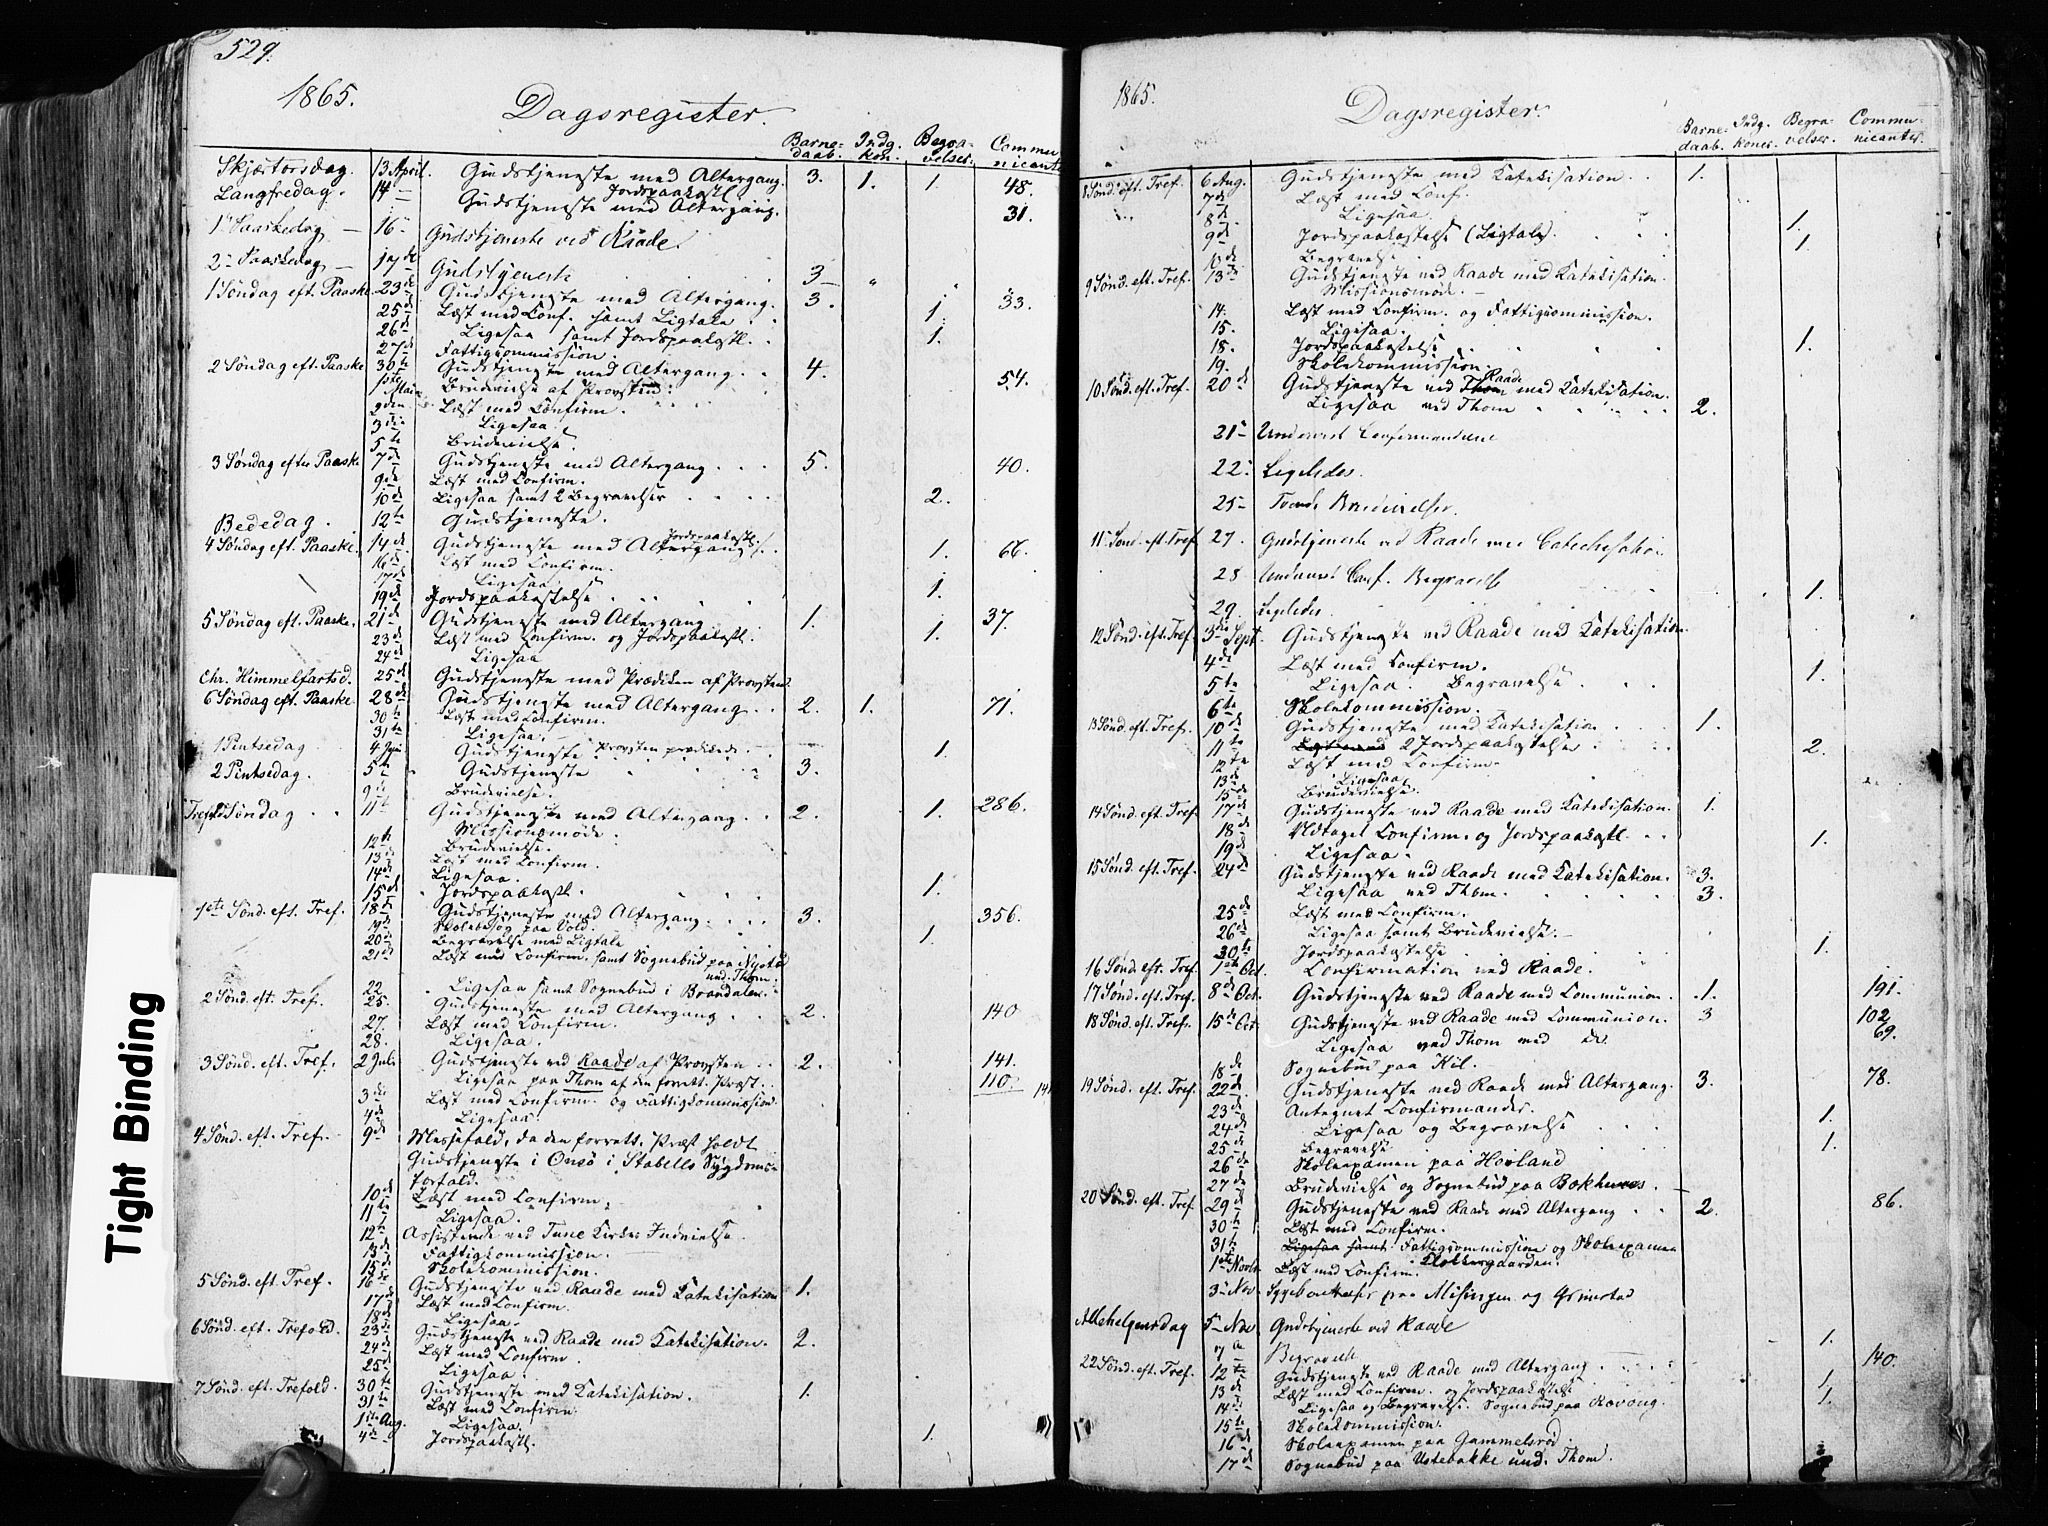 529.
1865.
Dagsregister.
Barnedaab. Indg. kon. Begravelser. Communicanter
Skjærtorsdag. 13 April. Gudstjeneste med Altergang. 3. 1. 1. 48.
Langfredag. 14 — Jordspaakastl
Gudstjeneste med Altergang. 31.
1ste Paaskedag — 16 — Gudstjeneste ved Raade.
2den Paaskedag — 17de Gudstjeneste 3
1 Søndag eft. Paaske. 23de Gudstjeneste med Altergang. 3. 33.
25de Læst med Conf. samt Ligtale 1.
26de Ligesaa samt Jordspaakastl. 1.
27de Fattigcommission.
2 Søndag eft. Paaske 30te Gudstjeneste med Altergang 4. 54.
1ste Mai Brudevielse af Provsten.
2den Læst med Confirm.
3die Ligesaa.
5te Brudevielse
3 Søndag efter Paaske 7de Gudstjeneste med Altergang 5. 40.
9de Læst med Confirm.
10de Ligesaa samt 2 Begravelser 2.
Bededag. 12te Gudstjeneste.
Jordspaakastl.
4 Søndag eft. Paaske. 14de Gudstjeneste med Altergang 1. 66.
16de Læst med Confirm.
17de Ligesaa
19de Jordspaakastelse 1.
5 Søndag eft. Paaske. 21de Gudstjeneste med Altergang 1. 37.
23de Læst med Confirm. og Jordspaakastl. 1.
24de Ligesaa
Chr. Himmelfartsd. 25de Gudstjeneste med Prædiken af Provsten
6 Søndag eft. Paaske 28de Gudstjeneste med Altergang 2. 1. 71.
30te Læst med Confirm.
31te Ligesaa.
1 Pintsedag 4 Juni Gudstjeneste Provsten prædikede 1.
2 Pintsedag. 5te Gudstjeneste 3.
9de Brudevielse.
Tref. Søndag 11te Gudstjeneste med Altergang 2. 1. 286.
Missionsmøde.
12te Brudevielse.
13de Læst med Confirm.
14de Ligesaa.
15de Jordspaakastl. 1.
1ste Sønd. eft. Tref. 18de Gudstjeneste med Altergang 3. 356.
19de Skolebesøg paa Vold.
20de Begravelse med Ligtale 1.
21de Læst med Confirm. samt Sognebud paa
und. Thom.
22 Ligesaa samt Sognebud i Brandalen.
2 Sønd. eft. Tref. 25. Gudstjeneste med Altergang 2. 140
27. Læst med Confirm.
28. Ligesaa.
3 Sønd. eft. Tref. 2 Juli Gudstjeneste ved Raade af Provsten 2. 141.
Ligesaa paa Thom af den forrett. Præst. 110
3die Læst med Confirm. og Fattigkommission.
4de Ligesaa.
4 Sønd. eft. Tref. 9de Messefald, da den forrett. Præst holdt
Gudstjeneste i Onsø i Stabells Sygdoms-
forfald.
10de Læst med Confirm.
11te Ligesaa.
12te Assisterede ved Tune Kirkes Indvielse.
13de Fattigkommission.
15de Skolekommission.
5 Sønd. eft. Tref. 16de Gudstjeneste ved Raade med Katekisation 1.
17de Læst med Confirm.
18de Ligesaa.
6 Sønd. eft. Trefold. 23de Gudstjeneste ved Raade med Katekisation. 2.
24de Læst med Confirm.
25de Ligesaa.
7 Sønd. eft. Trefold. 30te Gudstjeneste med Katekisation. 1.
31te Læst med Confirm.
1ste Aug. Ligesaa.
4de Jordspaakastl. 1.
Tight Binding
1865.
Dagsregister.
Barnedaab. Indg. koner. Begravelser. Communicanter.
8 Sønd. eft. Tref. 6 Aug. Gudstjeneste med Katekisation 1.
7de Læst med Conf.
8de Ligesaa.
9de Jordspaakastelse (Ligtale) 1.
13de Begravelse 1.
9 Sønd. eft. Tref. 13de Gudstjeneste ved Raade med Katekisation.
Missionsmøde.
14. Læst med Confirm. og Fattigcommission.
15. Ligesaa.
18. Jordspaakastelse 1.
19. Skolekommission
10 Sønd. eft. Tref. 20de Gudstjeneste ved Raade med Katekisation.
Ligesaa ved Thom 2.
21 — Underviist Confirmanderne
22. Ligeledes
25 — Tvende Brudevielser.
11 Sønd. eft. Tref 27. Gudstjeneste ved Raade med Catechisation
28 Underviist Conf. Begravelse 1.
29. Ligeledes
12 Sønd. eft. Tref. 3die Sept. Gudstjeneste ved Raade med Katekisation.
4de Læst med Confirm.
5te Ligesaa. Begravelse 1.
6te Skolekommission.
13 Sønd. eft. Tref. 10de Gudstjeneste med Katekisation 1.
11te 2 Jordspaakastelser 2.
12te Læst med Confirm.
13de Ligesaa.
15de Brudevielse.
14 Sønd. eft. Tref. 17de Gudstjeneste ved Raade med Katekisation. 1.
18de Udtaget Confirm. og Jordspaakastl. 1.
19de Ligesaa.
15 Sønd. eft. Tref. 24de Gudstjeneste ved Raade med Katekisation. 3.
Ligesaa ved Thom. 3.
25de Læst med Confirm.
26de Ligesaa samt Brudevielse.
30te Jordspaakastelse 1.
16 Sønd. eft. Tref. 1ste Oct. Confirmation ved Raade.
17 Sønd. eft. Tref. 8de Oct. Gudstjeneste ved Raade med Communion. 1. 191.
18 Sønd. eft. Tref. 15de Oct. Gudstjeneste ved Raade med Communion. 3 102
Ligesaa ved Thom med do. 69.
18de Sognebud paa Kil.
19 Sønd. eft. Tref. 22de Gudstjeneste ved Raade med Altergang. 3. 78.
23de Antegnet Confirmander.
24de Ligesaa og Begravelse 1.
25de Begravelse 1.
26de Skoleexamen paa Hovland
27de Brudevielse og Sognebud paa
20 Sønd. eft. Tref. 29de Gudstjeneste ved Raade med Altergang 2. 86.
30te Læst med Confirm.
31te Ligesaa samt Fattigcommission og Skoleexamen
Klokkergaarden.
1ste Novbr Læst med Confirm.
3 — Nov. paa Missingen og Grimstad
Allehelgensdag 5 — Nov Gudstjeneste ved Raade
Begravelse 1.
22 Sønd. eft. Tref. 12te Gudstjeneste ved Raade med Altergang 140.
13de Læst med Confirm. og Jordspaakastelse 1.
14de Ligesaa og Begravelse. Sognebud paa 1.
15te Skolekommission.
16de Skoleexamen paa Gammelsrød
17de Sognebud paa Ustebakke und. Thom.